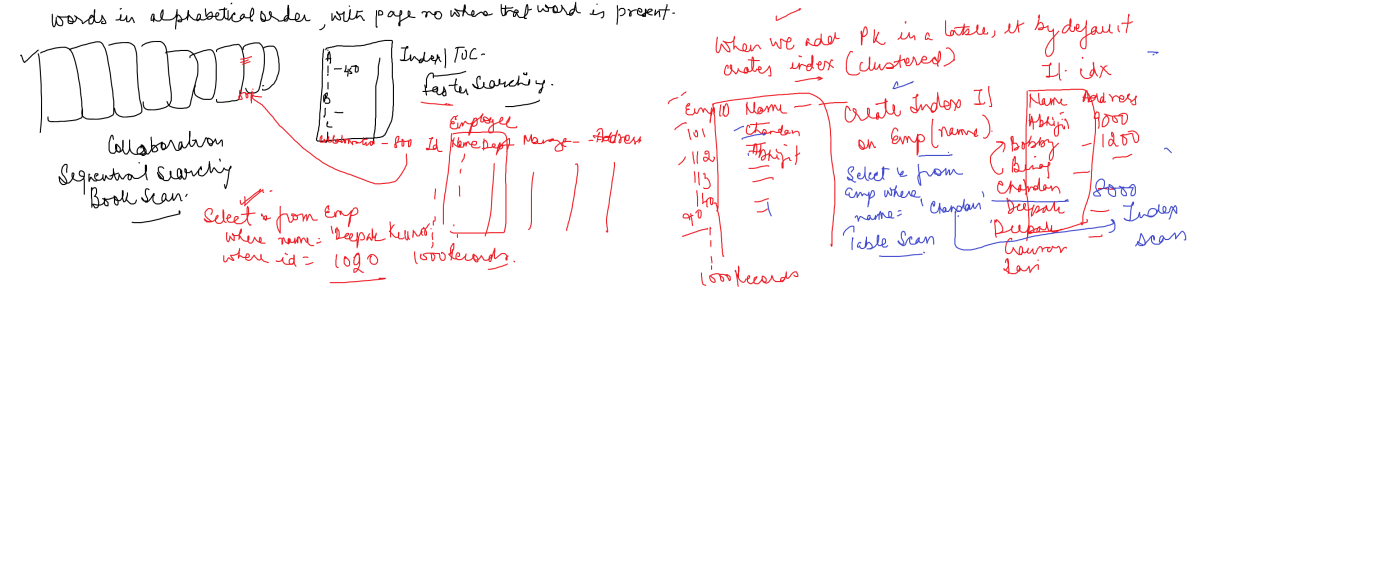 words in alphabetical order, with page no where that word is present.
A
-450
B
Index/TOC-
faster Searching.
Collaboration
Sequential Searching
Book Scan.
- 800
Employee
Id Name Dept Manage - - Address
Select * from Emp
where name = 'Deepak Kumar'
where id = 1020
1000 Records.
When we add PK in a table, it by default
creates index (clustered)
EmpID Name
101 Chandan
112 Abhijit
113
140
90
1000 Records
Create Index I1
on Emp (name).
Select * from
Emp where
name = 'Chandan'
Table Scan
I1. idx
Name Address
Abhijit 9000
Bobby - 1200
Chandan 8000
Deepak
Deepak
Index
scan